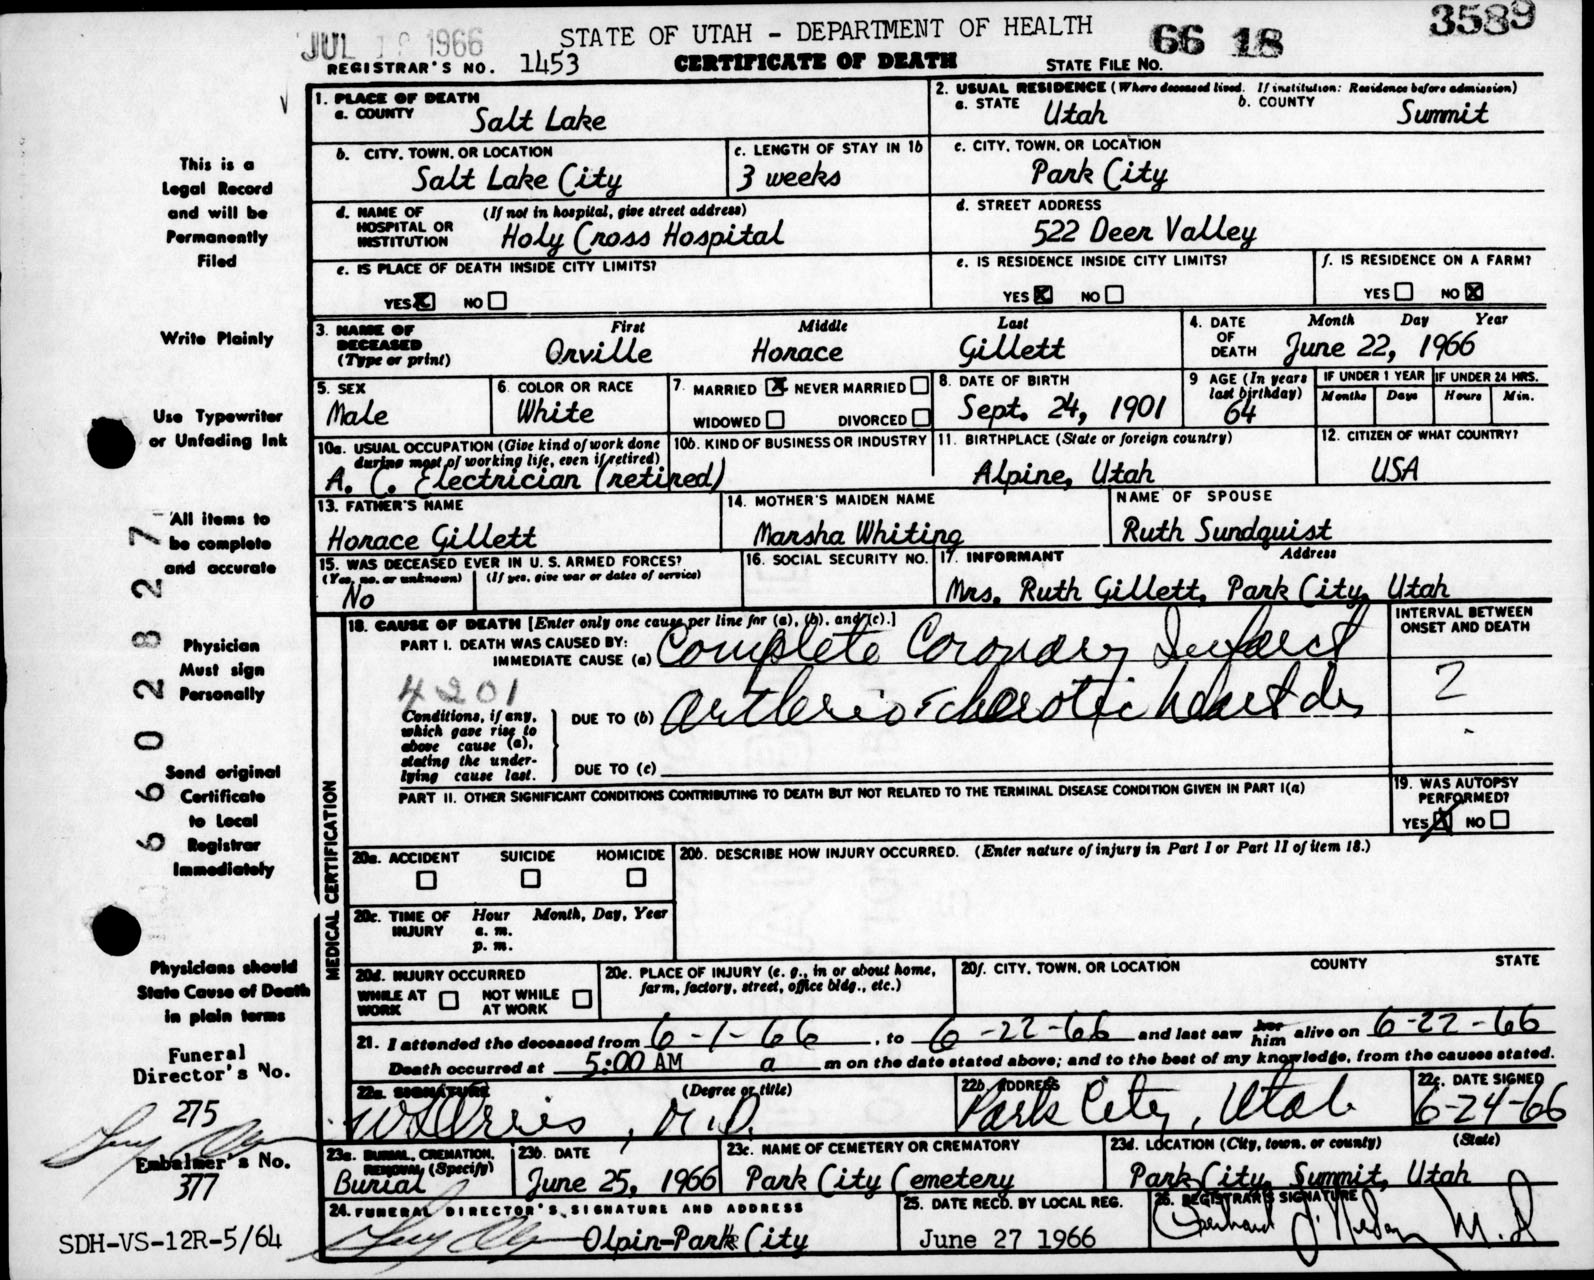 JUL 1966
STATE OF UTAH - DEPARTMENT OF HEALTH
66 18
3589
REGISTRAR'S NO. 1453
CERTIFICATE OF DEATH
STATE FILE NO.
1. PLACE OF DEATH
a. COUNTY Salt Lake
2. USUAL RESIDENCE (Where deceased lived. If institution: Residence before admission)
a. STATE Utah b. COUNTY Summit
b. CITY, TOWN, OR LOCATION
Salt Lake City
c. LENGTH OF STAY IN 1b
3 weeks
c. CITY, TOWN, OR LOCATION
Park City
d. NAME OF HOSPITAL OR INSTITUTION (If not in hospital, give street address)
Holy Cross Hospital
d. STREET ADDRESS
522 Deer Valley
e. IS PLACE OF DEATH INSIDE CITY LIMITS?
YES NO
e. IS RESIDENCE INSIDE CITY LIMITS?
YES NO
f. IS RESIDENCE ON A FARM?
YES NO
3. NAME OF DECEASED (Type or print)
First Middle Last
Orville Horace Gillett
4. DATE OF DEATH
Month Day Year
June 22, 1966
5. SEX
Male
6. COLOR OR RACE
White
7. MARRIED NEVER MARRIED
WIDOWED DIVORCED
8. DATE OF BIRTH
Sept. 24, 1901
9 AGE (In years last birthday)
64
IF UNDER 1 YEAR
Months Days
IF UNDER 24 HRS.
Hours Min.
10a. USUAL OCCUPATION (Give kind of work done during most of working life, even if retired)
A. C. Electrician (retired)
10b. KIND OF BUSINESS OR INDUSTRY
11. BIRTHPLACE (State or foreign country)
Alpine, Utah
12. CITIZEN OF WHAT COUNTRY?
USA
13. FATHER'S NAME
Horace Gillett
14. MOTHER'S MAIDEN NAME
Marsha Whiting
NAME OF SPOUSE
Ruth Sundquist
15. WAS DECEASED EVER IN U. S. ARMED FORCES?
(Yes, no. or unknown) (If yes, give war or dates of service)
No
16. SOCIAL SECURITY NO.
17. INFORMANT Address
Mrs. Ruth Gillett, Park City, Utah
MEDICAL CERTIFICATION
18. CAUSE OF DEATH [Enter only one cause per line for (a), (b), and (c).]
INTERVAL BETWEEN ONSET AND DEATH
PART I. DEATH WAS CAUSED BY:
IMMEDIATE CAUSE (a) Complete Coronary Infarct
4201
Conditions, if any, which gave rise to above cause (a), stating the underlying cause last.
DUE TO (b) artherioscherotic heart dis
2
DUE TO (c)
PART II. OTHER SIGNIFICANT CONDITIONS CONTRIBUTING TO DEATH BUT NOT RELATED TO THE TERMINAL DISEASE CONDITION GIVEN IN PART I(a)
19. WAS AUTOPSY PERFORMED?
YES NO
20a. ACCIDENT SUICIDE HOMICIDE
20b. DESCRIBE HOW INJURY OCCURRED. (Enter nature of injury in Part I or Part II of item 18.)
20c. TIME OF INJURY Hour Month, Day, Year
a. m.
p. m.
20d. INJURY OCCURRED
WHILE AT WORK NOT WHILE AT WORK
20e. PLACE OF INJURY (e. g., in or about home, farm, factory, street, office bldg., etc.)
20f. CITY, TOWN, OR LOCATION COUNTY STATE
21. I attended the deceased from 6-1-66, to 6-22-66 and last saw her him alive on 6-22-66
Death occurred at 5:00 AM a m on the date stated above; and to the best of my knowledge, from the causes stated.
22a. SIGNATURE (Degree or title)
M.D.
22b. ADDRESS
Park City, Utah
22c. DATE SIGNED
6-24-66
23a. BURIAL, CREMATION, REMOVAL (Specify)
Burial
23b. DATE
June 25, 1966
23c. NAME OF CEMETERY OR CREMATORY
Park City Cemetery
23d. LOCATION (City, town, or county) (State)
Park City, Summit, Utah
24. FUNERAL DIRECTOR'S SIGNATURE AND ADDRESS
Olpin-Park City
25. DATE RECD. BY LOCAL REG.
June 27 1966
26. REGISTRAR'S SIGNATURE
M.D
This is a
Legal Record
and will be
Permanently
Filed
Write Plainly
Use Typewriter
or Unfading Ink
All items to
be complete
and accurate
Physician
Must sign
Personally
Send original
Certificate
to Local
Registrar
Immediately
Physicians should
State Cause of Death
in plain terms
Funeral
Director's No.
275
Embalmer's No.
377
SDH-VS-12R-5/64
6602827